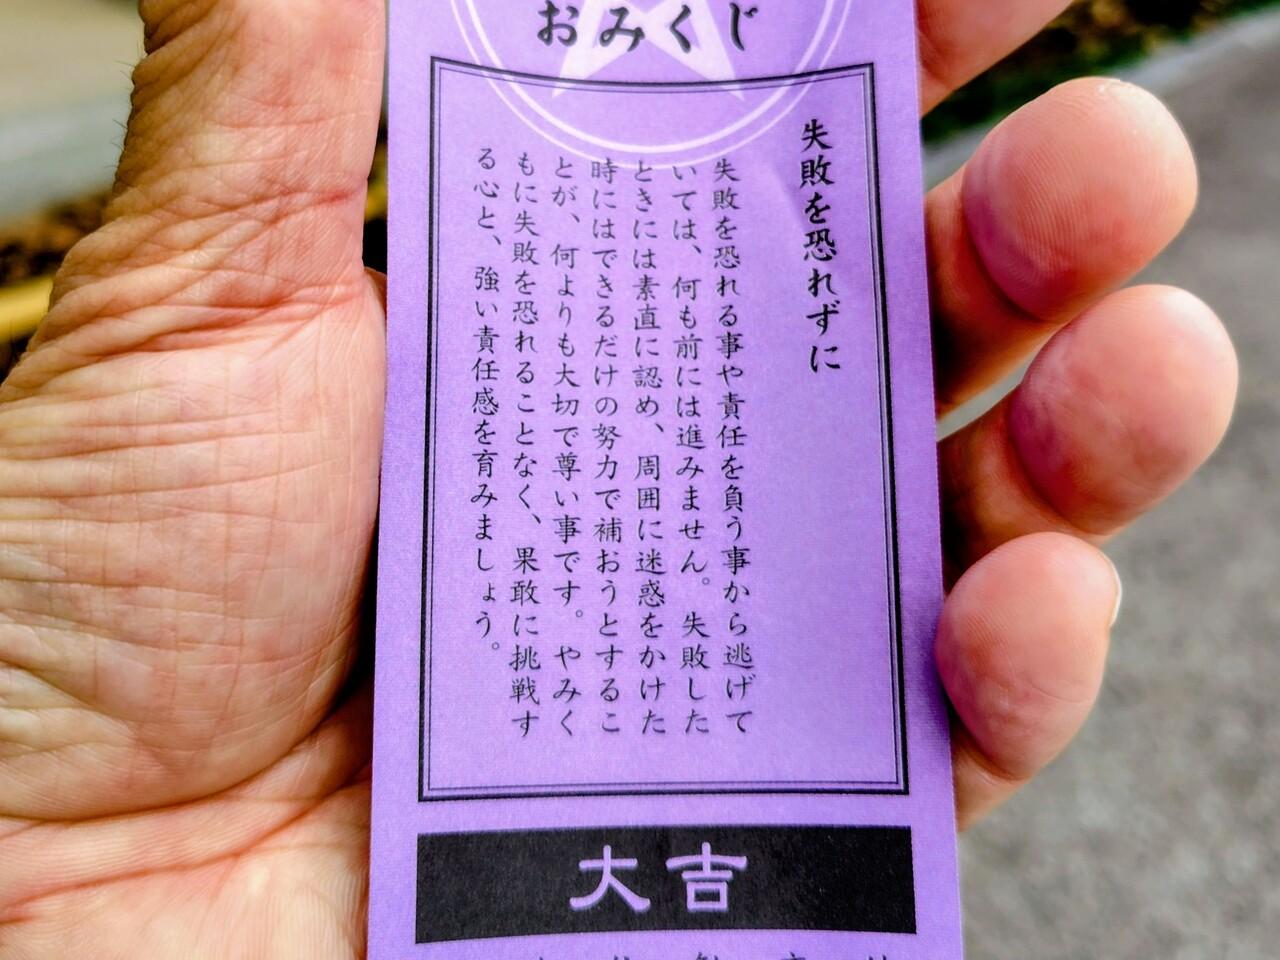 おみくじ
失敗を恐れずに
失敗を恐れる事や責任を負う事から逃げて
いては、何も前には進みません。失敗した
ときには素直に認め、周囲に迷惑をかけた
時にはできるだけの努力で補おうとするこ
とが、何よりも大切で尊い事です。やみく
もに失敗を恐れることなく、果敢に挑戦す
る心と、強い責任感を育みましょう。
大吉